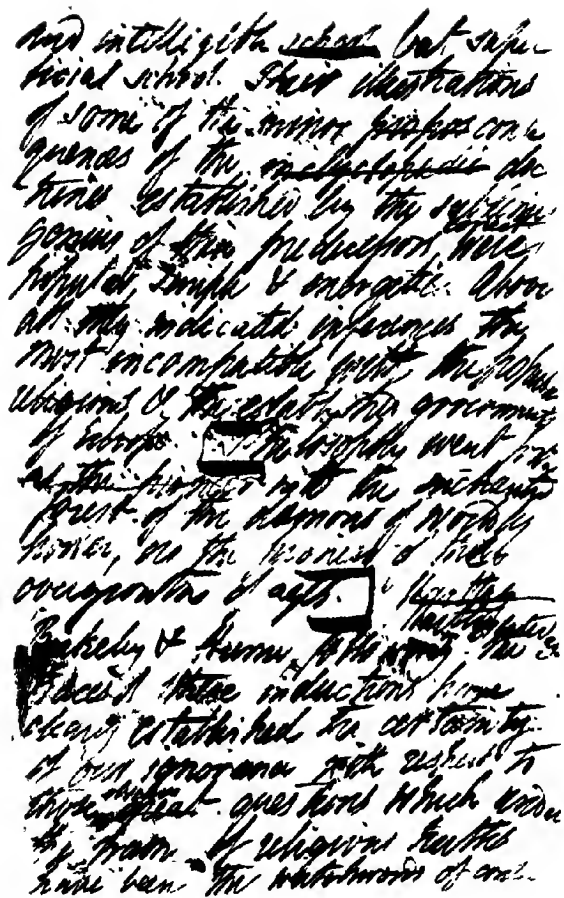 and intelligeth school but super
ficial school. Their illustrations
of some of the minor conse
quences of the encyclopedic doc
trines established by the sublime
genius of their predecessors were correct
popular, simple & energetic. Above
all they indicated inferences the
most incompatible with the popular
religions & the established governments
of Europe. Philosophy went for
as the pioneer into the enchanted
forest of the dæmons of worldly
power, as the pioneer of the
overgrowths of ages. Hartley
Berkeley & Hume, following the
traces of these inductions have
clearly established the certainty
of our ignorance with respect to
those obscure great questions which under
the name of religious truths
have been the watchwords of con-